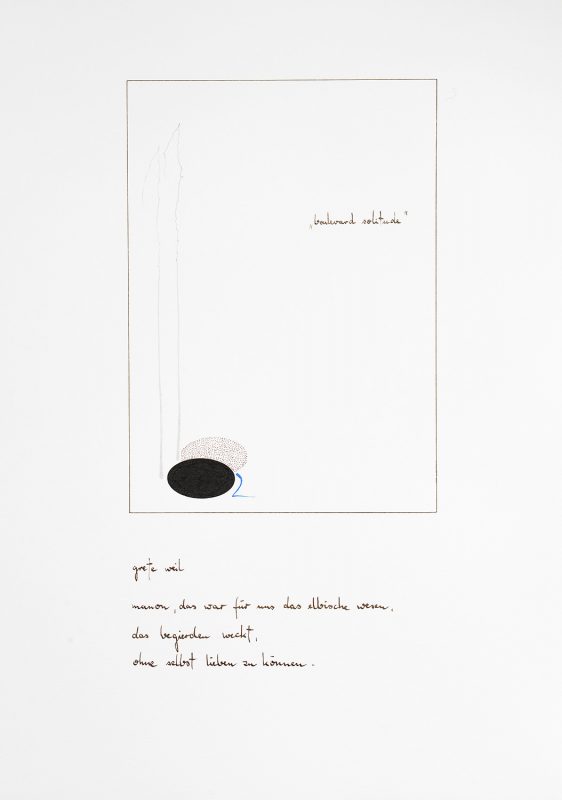 „boulevard solitude"
2
grete weil
manon, das war für uns das elbische wesen,
das begierden weckt,
ohne selbst lieben zu können.